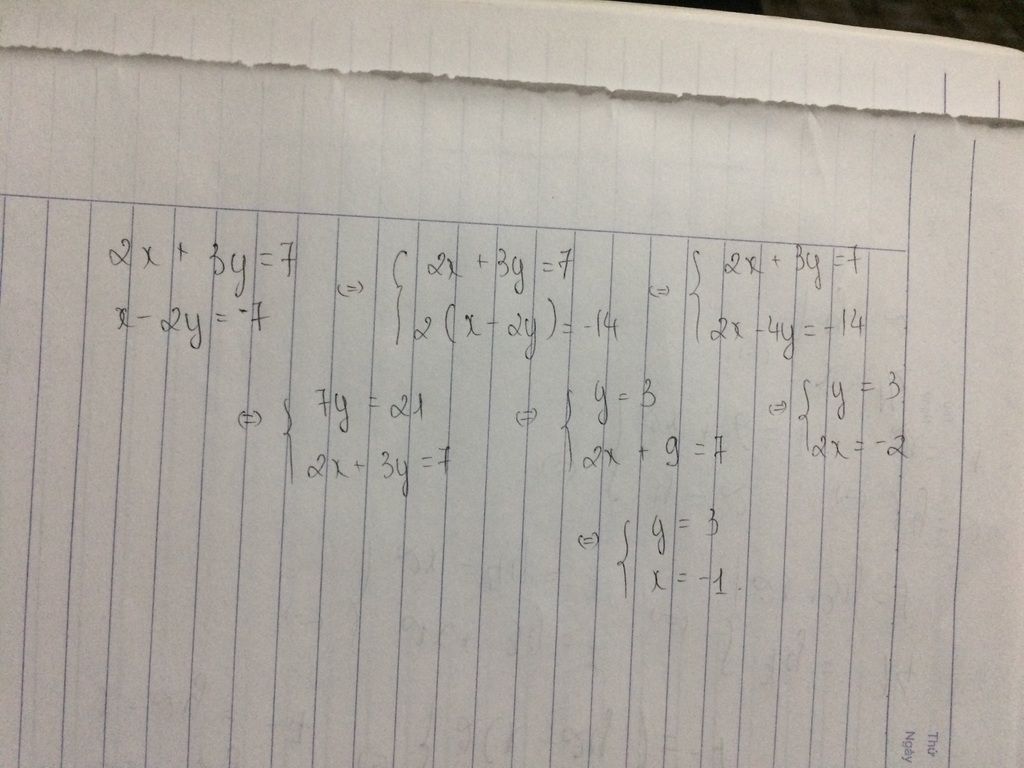 2x + 3y = 7
x - 2y = -7
(=) { 2x + 3y = 7
2(x - 2y) = -14
(=) { 2x + 3y = 7
2x - 4y = -14
(=) { 7y = 21
2x + 3y = 7
(=) { y = 3
2x + 9 = 7
(=) { y = 3
2x = -2
(=) { y = 3
x = -1.
Thứ
Ngày